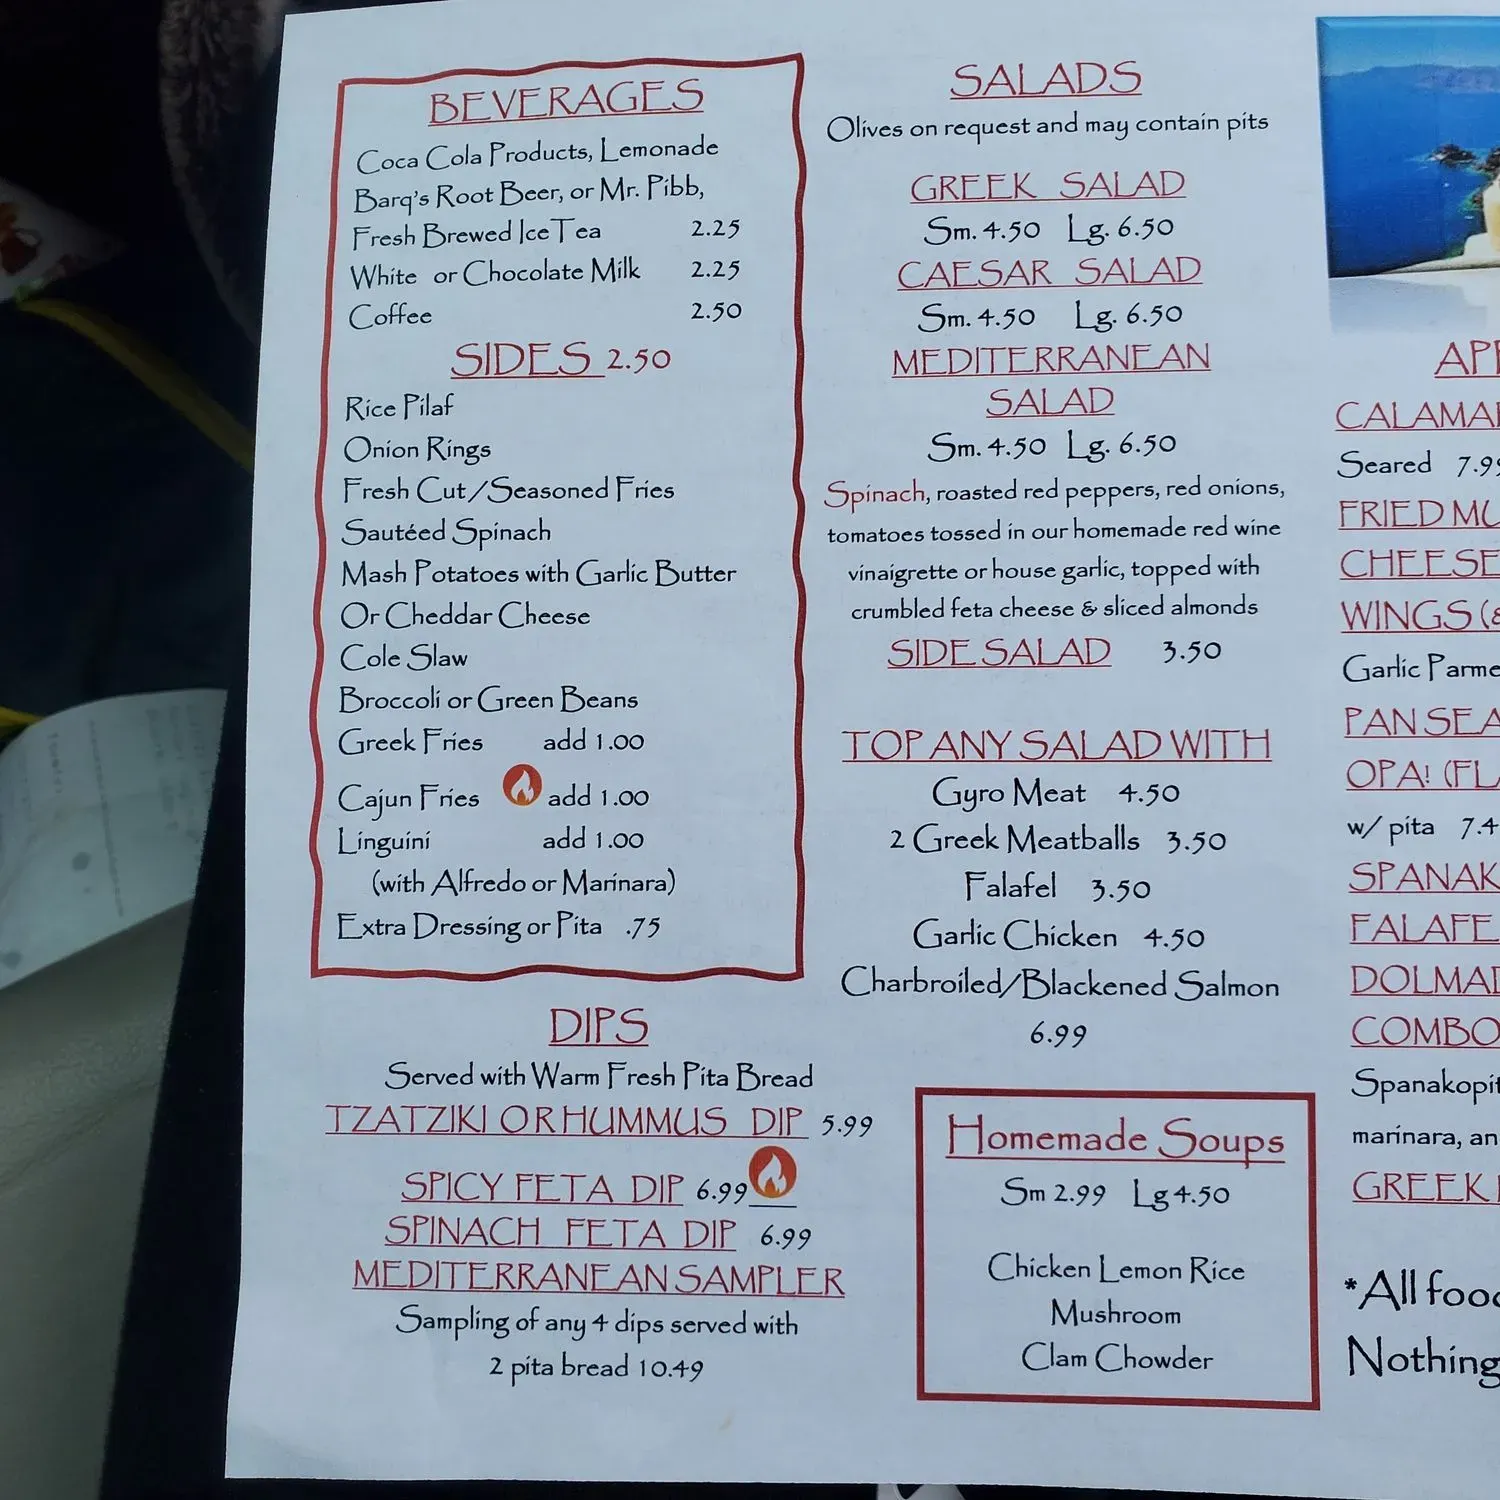 BEVERAGES
Coca Cola Products, Lemonade
Barq's Root Beer, or Mr. Pibb,
Fresh Brewed Ice Tea 2.25
White or Chocolate Milk 2.25
Coffee 2.50
SIDES 2.50
Rice Pilaf
Onion Rings
Fresh Cut/Seasoned Fries
Sautéed Spinach
Mash Potatoes with Garlic Butter
Or Cheddar Cheese
Cole Slaw
Broccoli or Green Beans
Greek Fries add 1.00
Cajun Fries add 1.00
Linguini add 1.00
(with Alfredo or Marinara)
Extra Dressing or Pita .75
DIPS
Served with Warm Fresh Pita Bread
TZATZIKI OR HUMMUS DIP 5.99
SPICY FETA DIP 6.99
SPINACH FETA DIP 6.99
MEDITERRANEAN SAMPLER
Sampling of any 4 dips served with
2 pita bread 10.49
SALADS
Olives on request and may contain pits
GREEK SALAD
Sm. 4.50 Lg. 6.50
CAESAR SALAD
Sm. 4.50 Lg. 6.50
MEDITERRANEAN
SALAD
Sm. 4.50 Lg. 6.50
Spinach, roasted red peppers, red onions,
tomatoes tossed in our homemade red wine
vinaigrette or house garlic, topped with
crumbled feta cheese & sliced almonds
SIDE SALAD 3.50
TOP ANY SALAD WITH
Gyro Meat 4.50
2 Greek Meatballs 3.50
Falafel 3.50
Garlic Chicken 4.50
Charbroiled/Blackened Salmon
6.99
Homemade Soups
Sm 2.99 Lg 4.50
Chicken Lemon Rice
Mushroom
Clam Chowder
APP
CALAMAR
Seared 7.99
FRIED MU
CHEESE
WINGS (8
Garlic Parme
PAN SEA
OPA! (FLA
w/ pita 7.4
SPANAK
FALAFE
DOLMAD
COMBO
Spanakopit
marinara, an
GREEK
*All food
Nothing